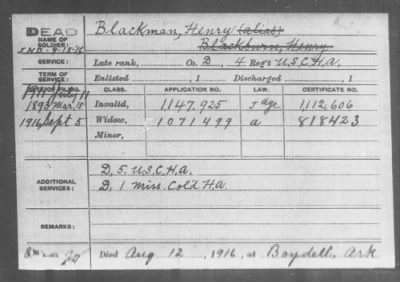 DEAD Blackman, Henry (alias)
NAME OF SOLDIER: Blackburn, Henry
SERVICE: Late rank, Co. D, 4 Reg't U.S.C.H.A.
TERM OF SERVICE: Enlisted , 1 Discharged , 1
CLASS. APPLICATION NO. LAW. CERTIFICATE NO.
1893 Mar. 15 Invalid, 1,147,925 J Age 1,112,606
1916 Sept 5 Widow, 1071499 a 818423
Minor,
ADDITIONAL SERVICES: D. 5 U.S.C.H.A.
D. 1 Miss. Col'd H.A.
REMARKS:
Died Aug 12, 1916, at Boydell, Ark